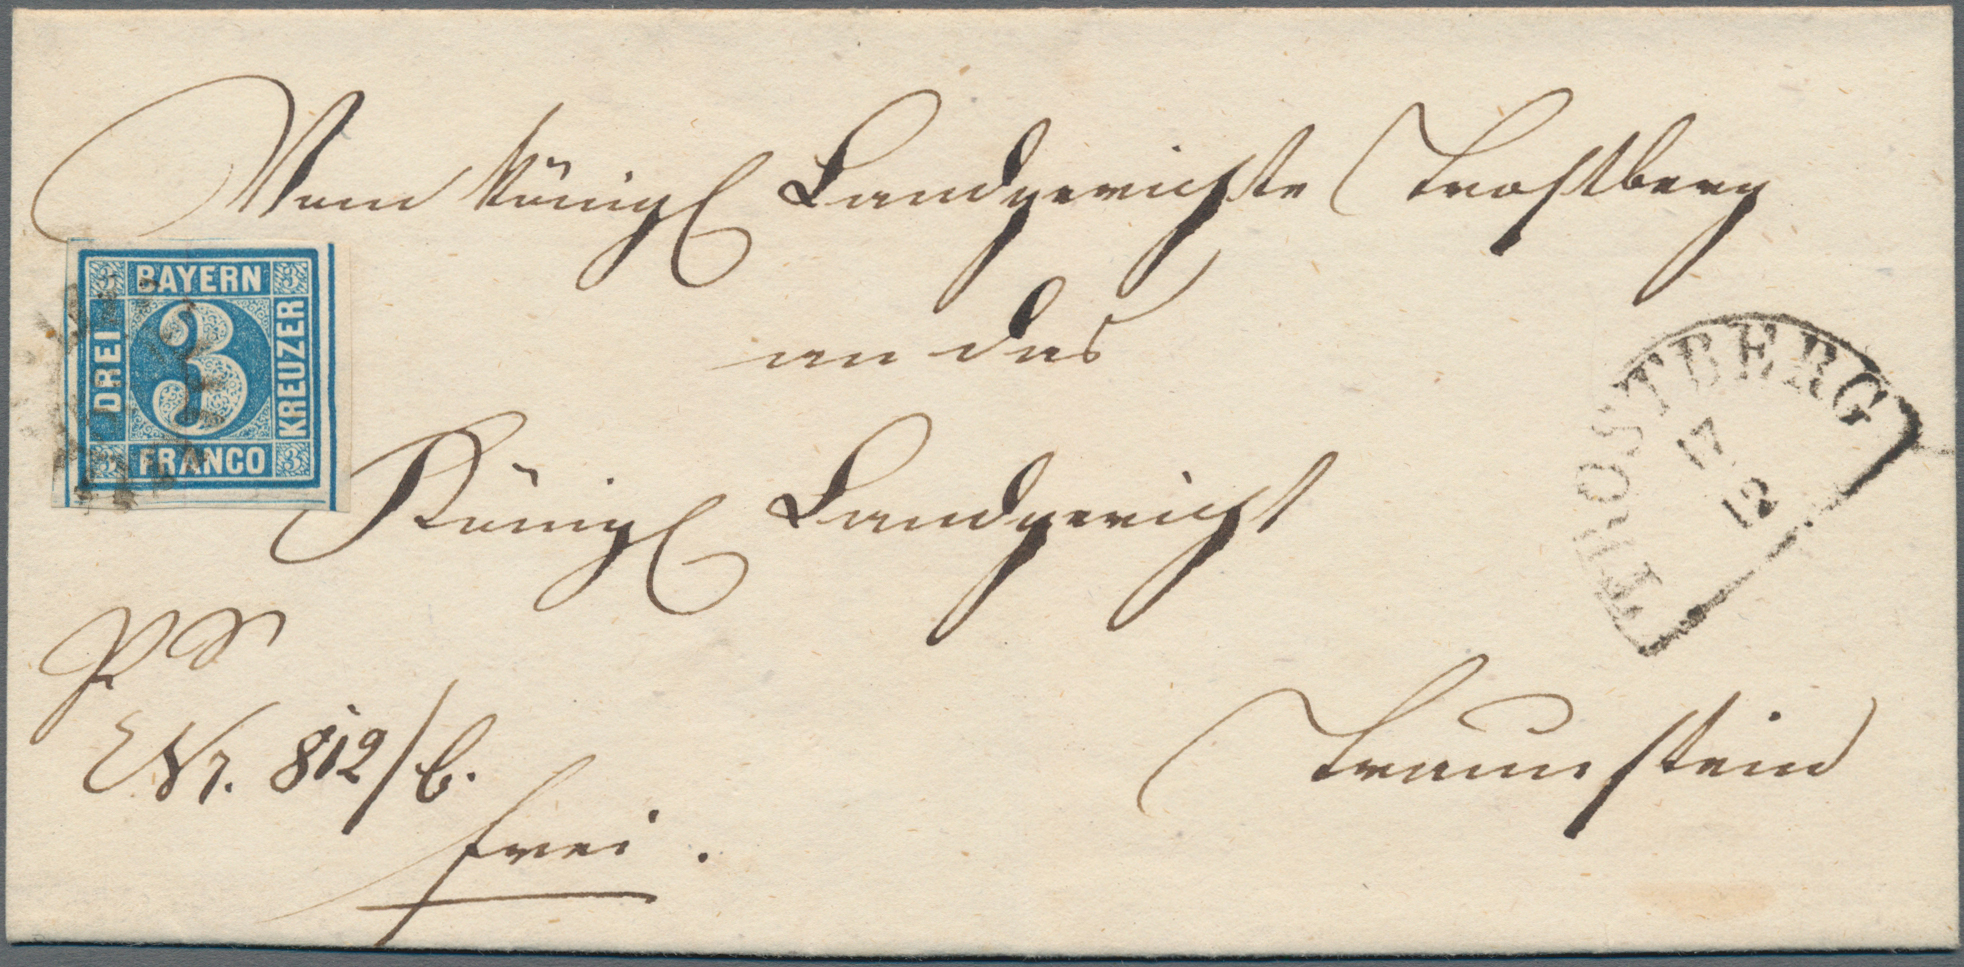 Vom Königl Landgerichte Trostberg
an das
Königl Landgericht
Traunstein
Nr. 812/b.
frei.
3 BAYERN 3
DREI 3 KREUZER
3 FRANCO 3
TROSTBERG
17
12